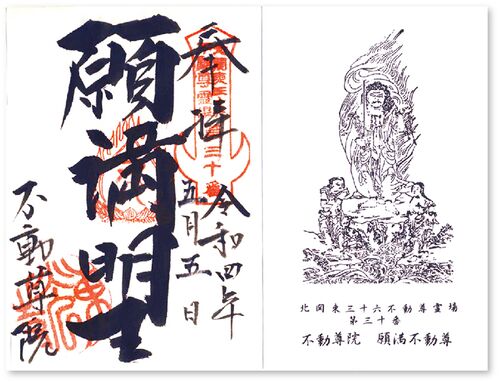 奉拝
令和四年
五月五日
願満明王
不動尊院
北関東三十六不動尊霊場
第三十番
不動尊院　願満不動尊